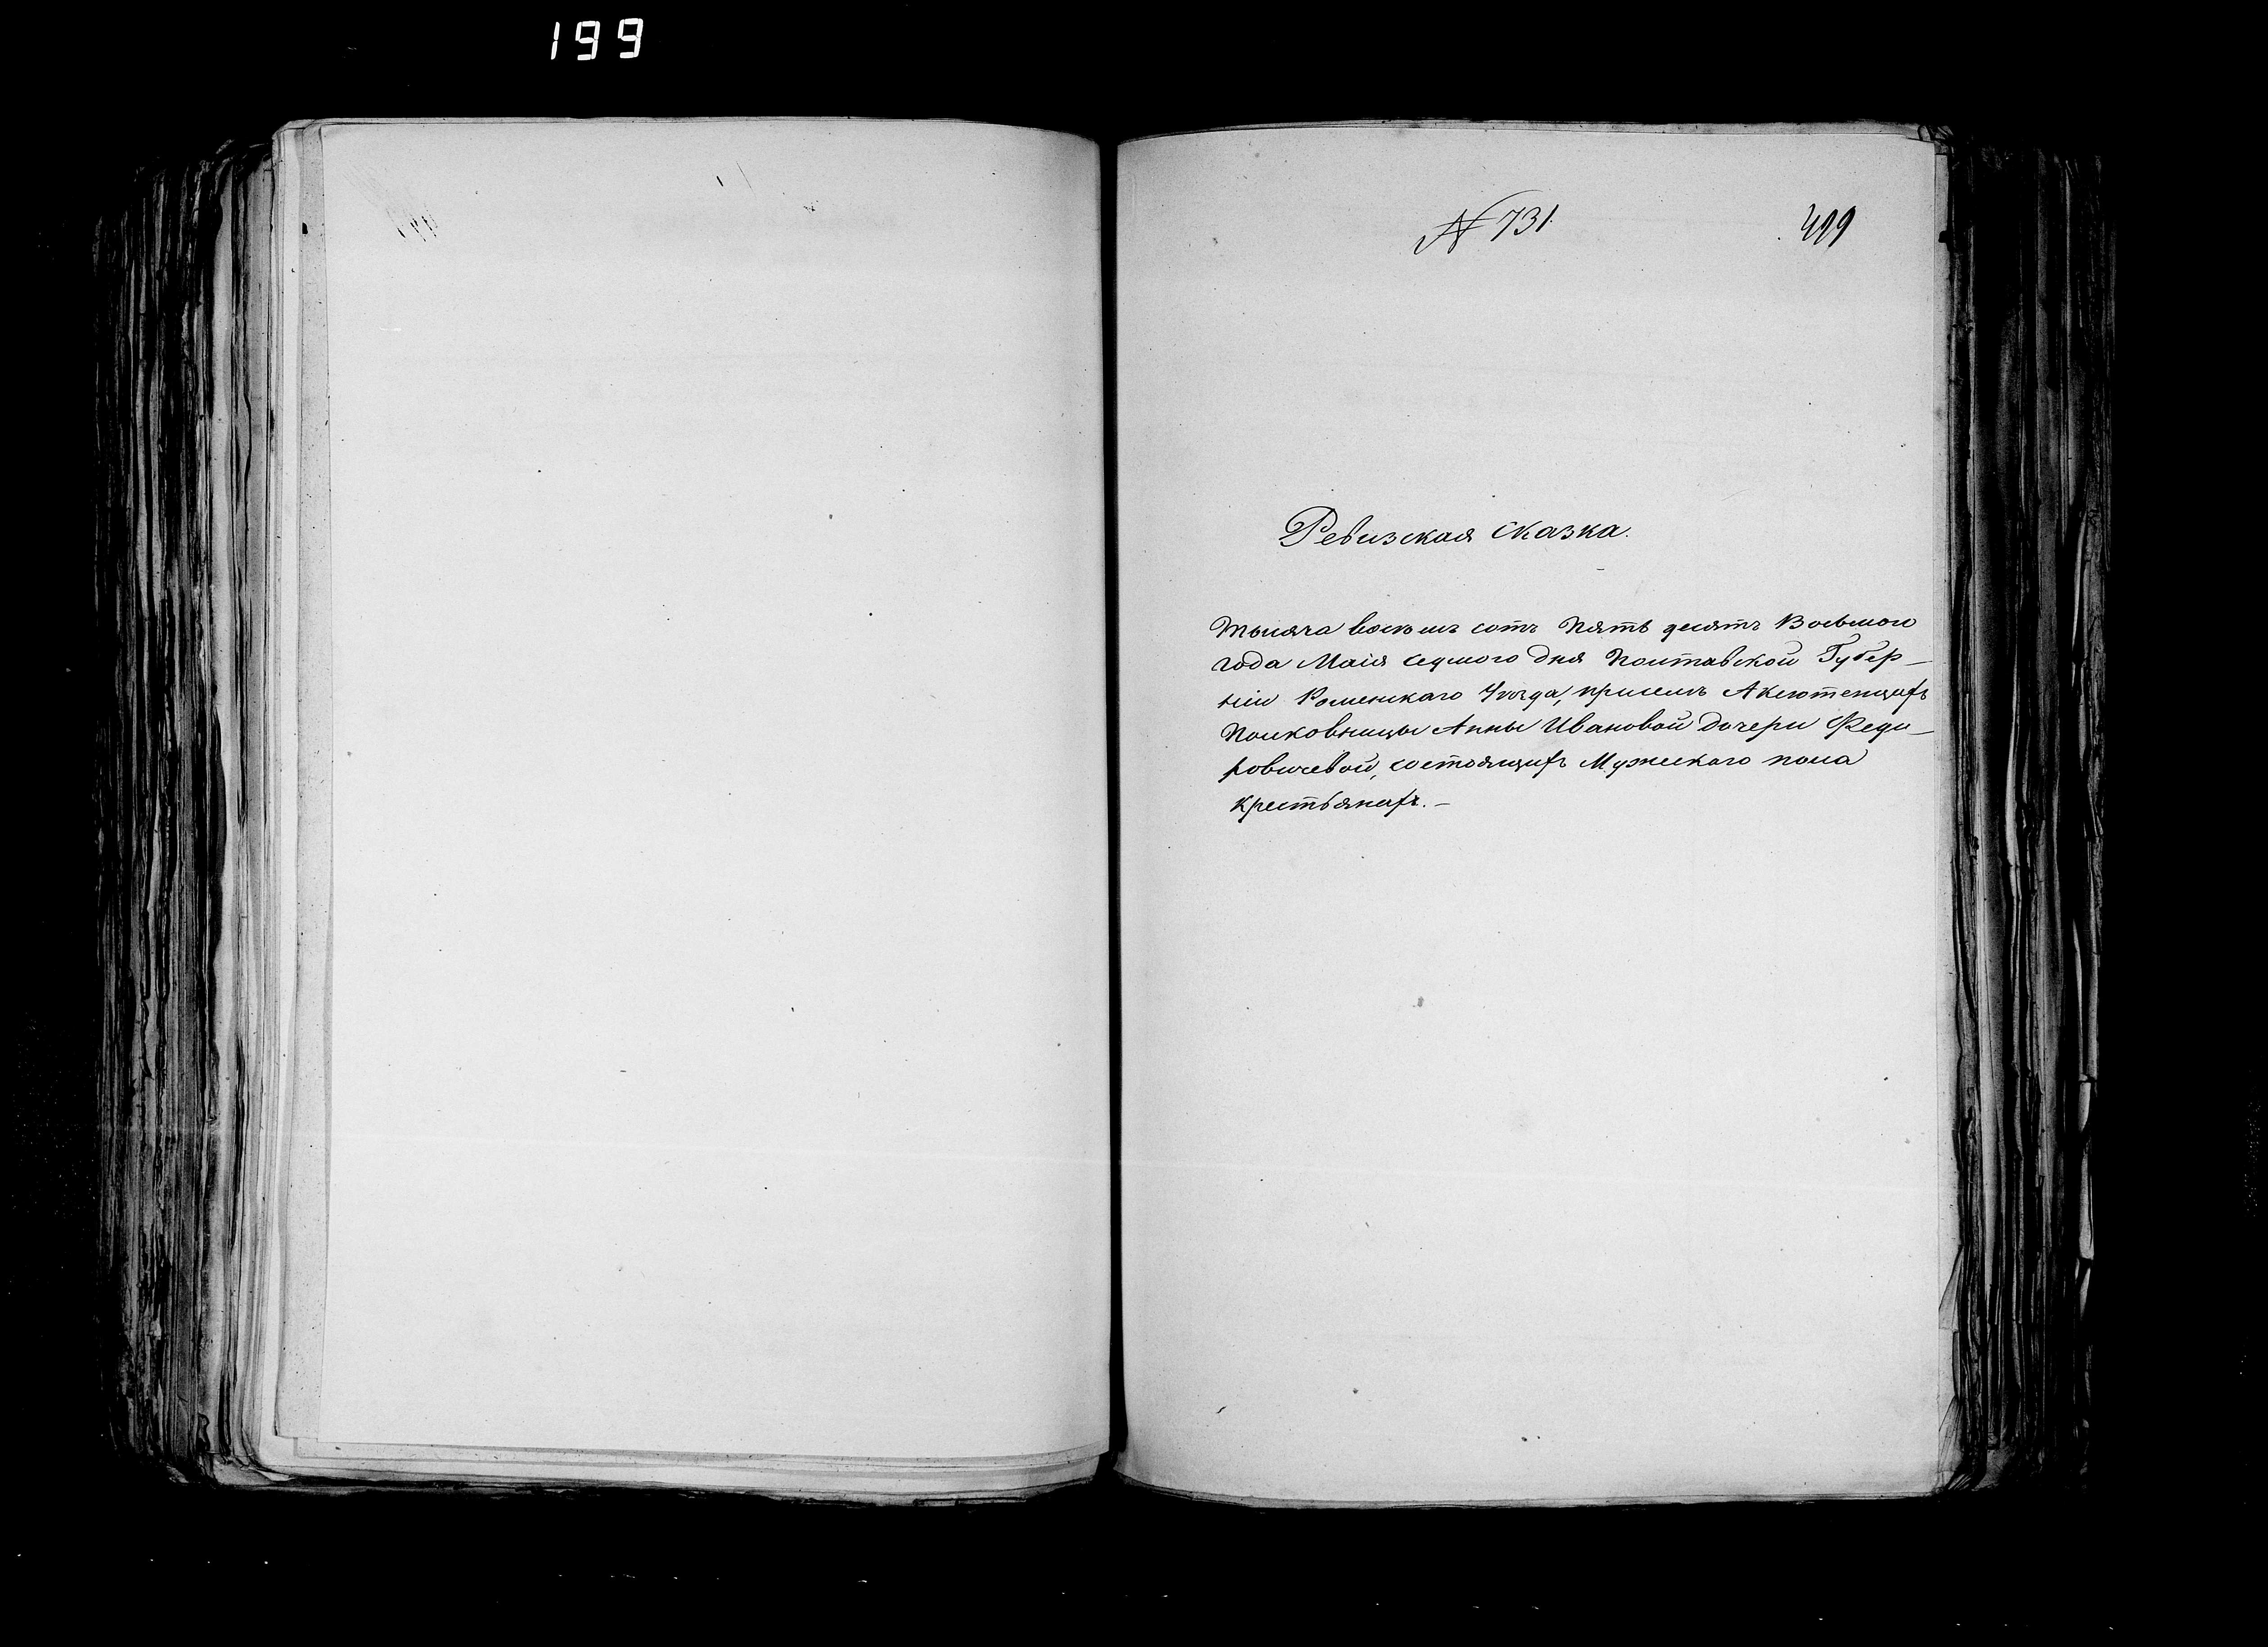 199
N 731.
499
Ревизская сказка.
Тысяча восемь сотъ Пять десятъ Восьмого
года Маія седмого дня Полтавской Губер-
ніи Роменскаго Уѣзда, при селѣ Аксютенцахъ
Полковницы Анны Ивановой дочери Феди-
ровичевой, состоящихъ Мужескаго пола
крестьянахъ. -